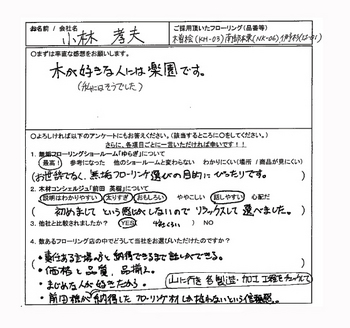 お名前 / 会社名
小林 孝夫
ご採用頂いたフローリング（品番等）
(KH-03) (NK-06)
○まずは率直な感想をお願いします。
木が好きな人には楽園です。
(私にはそうでした)
○よろしければ以下のアンケートにもお答えください。（該当するところに○をしてください。）
さらに、各項目ごとに一言いただければ幸いです！！
1. 無垢フローリングショールーム「ゆらぎ」について
最高！ 参考になった 他のショールームと変わらない わかりにくい（場所 / 商品が見にくい）
(お世辞でなく、無垢フローリング選びの目的にぴったりです。)
2. 木材コンシェルジュ「前田 英樹」について
説明はわかりやすい 太りすぎ おもしろい ややこしい 話しやすい 心配だ
(初めましてという感じがしないのでリラックスして選べました。)
3. 他社と比較されましたか？ YES
4. 数あるフローリング店の中でどうして当社をお選びいただけたのですか？
納得できるまで話しができる。
・価格と品質、品揃え。
・まじめな人が好きだから。
山に行き 製造・加工 工程をチェックして
・前田様が納得したフローリング材しか扱わないという信頼感。